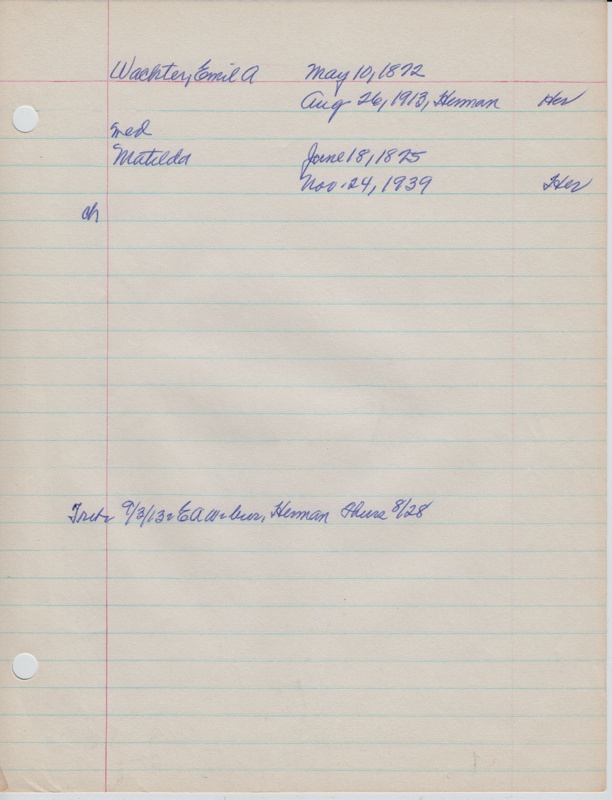 Wachter, Emil A May 10, 1872
Aug 26, 1913, Herman Her
med
Matilda June 18, 1875
Nov. 24, 1939 Her
ch
9/3/13: EAW- bur, Herman Thurs 8/28